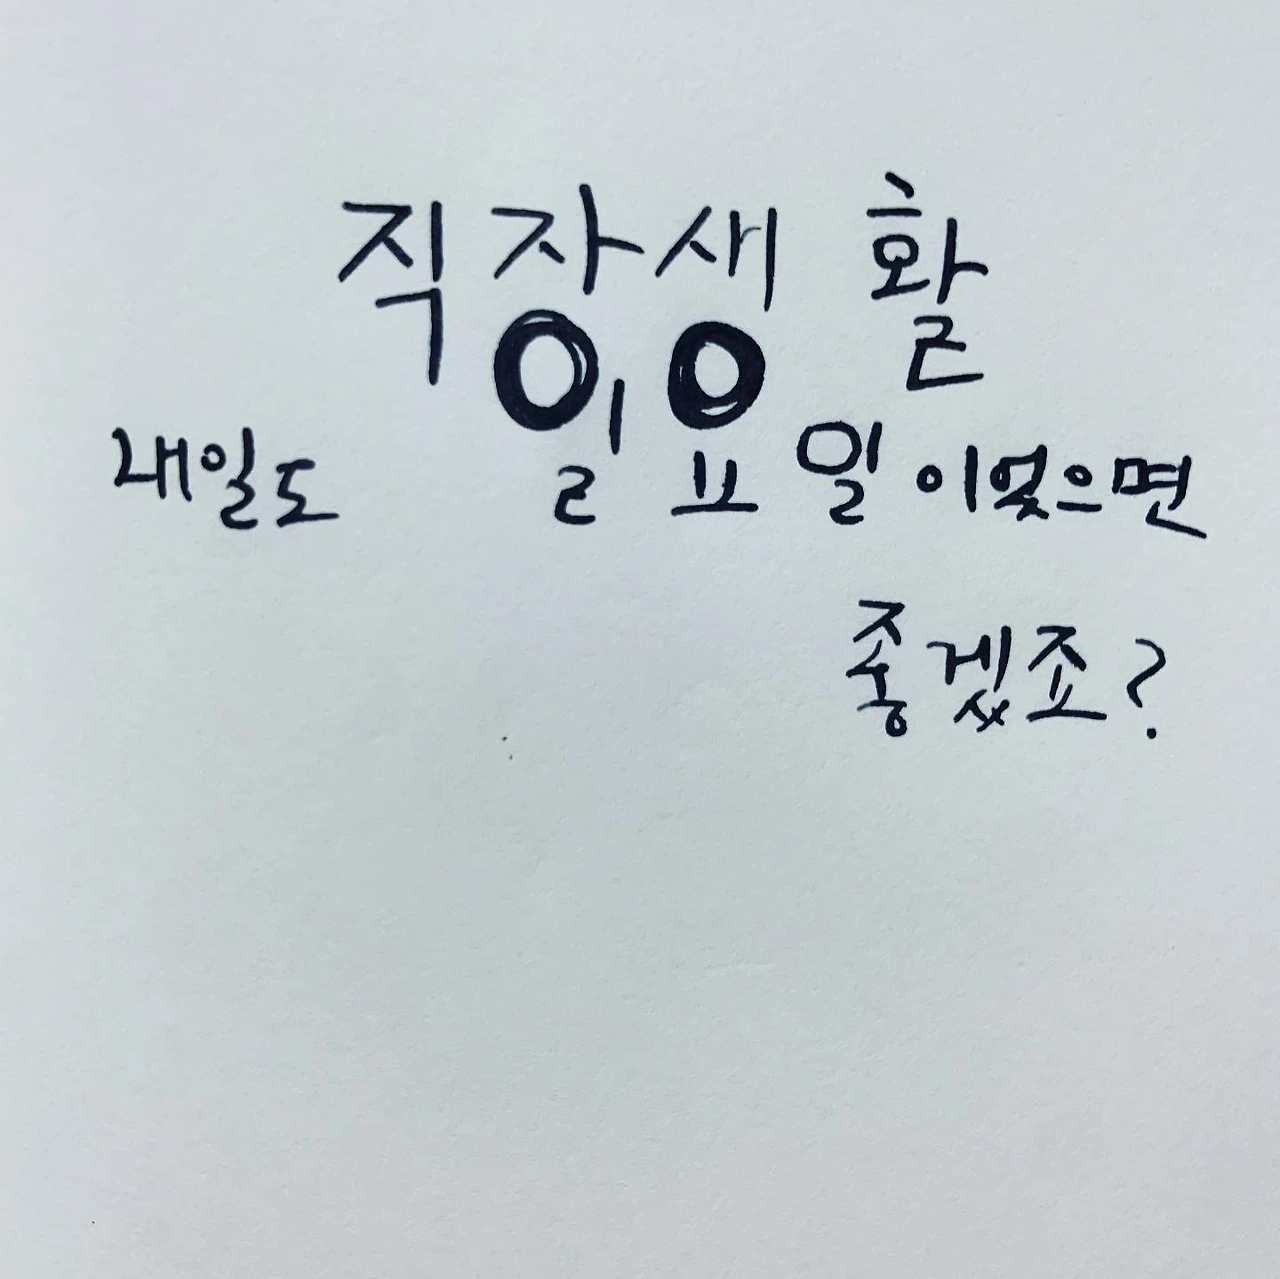 직장생활
내일도 일요일이었으면
좋겠죠?